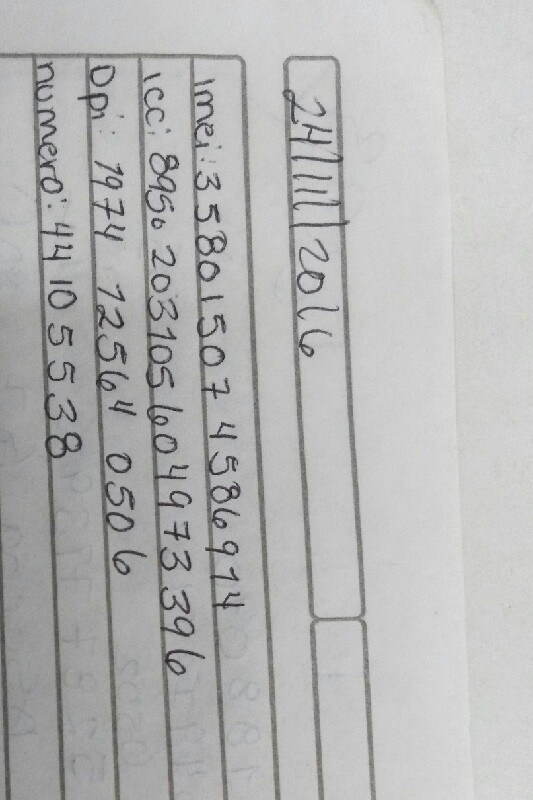 24/11/2016
Imei: 35801507 4586914
icc: 8950 2031056049733 96
Dpi: 1974 12564 0506
numero: 4410 5538